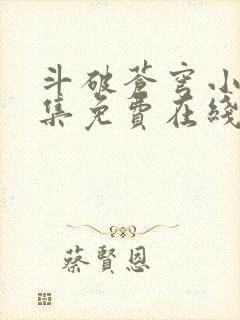 斗破苍穹小
集免費在綫
蔡賢恩